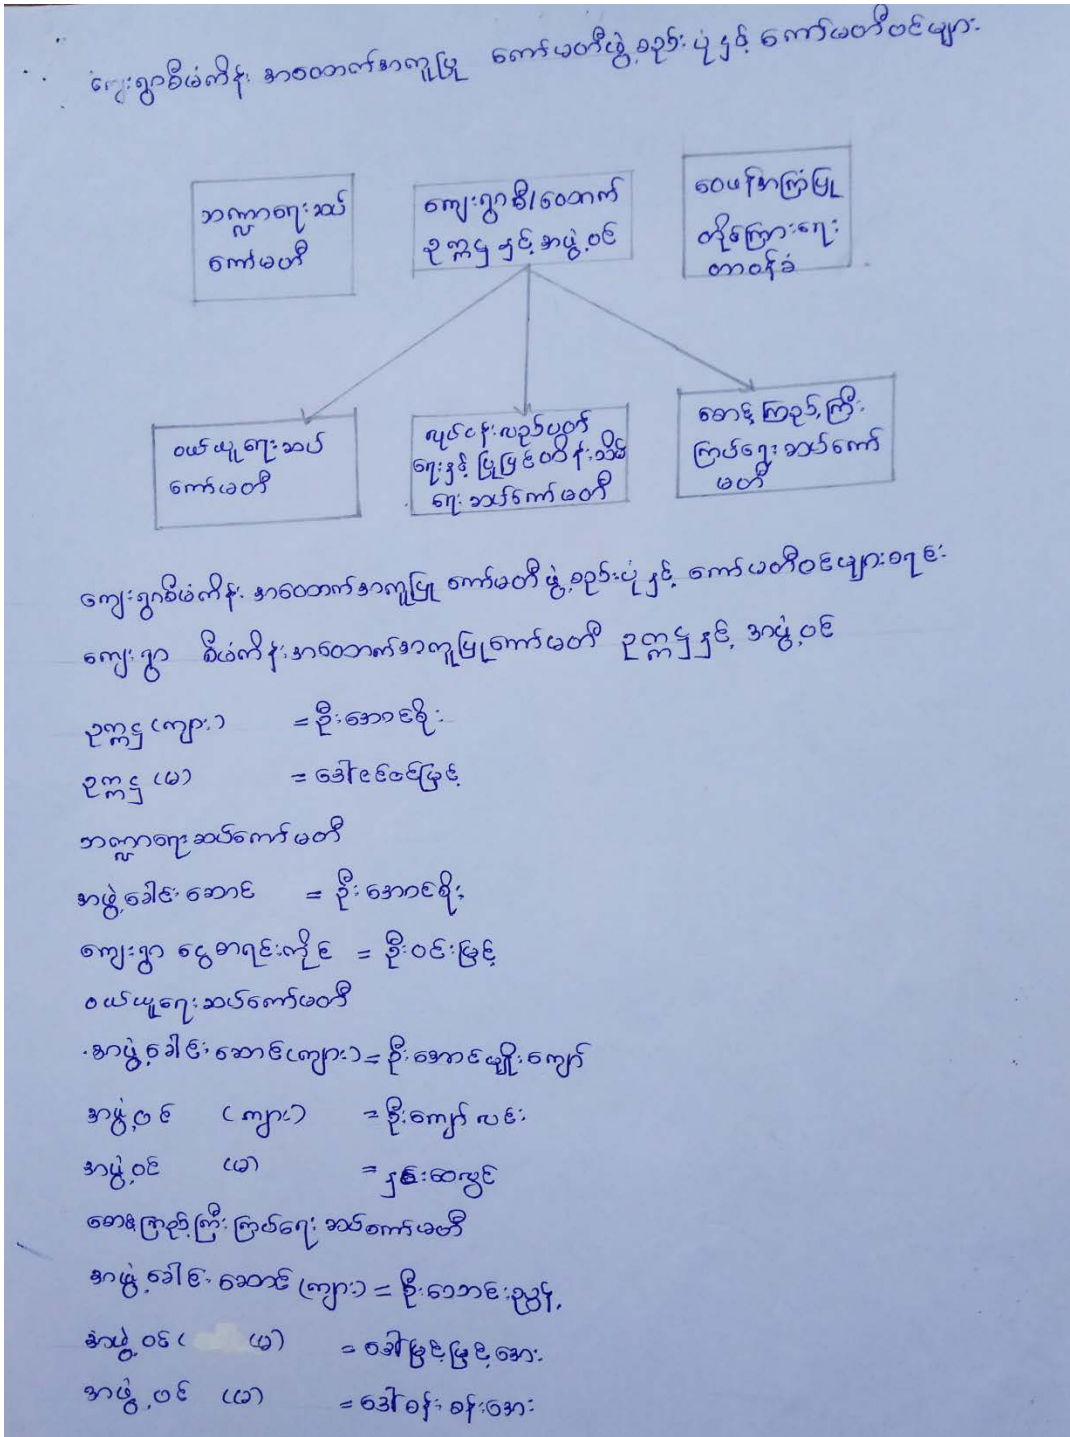 ကျေးရွာစီမံကိန်း အထောက်အကူပြု ကော်မတီဖွဲ့စည်းပုံနှင့် ကော်မတီဝင်များ
ဘဏ္ဍာရေးဆပ်
ကော်မတီ
ကျေးရွာစီ/ထောက်
ဥက္ကဋ္ဌ နှင့် အဖွဲ့ဝင်
ဝေဖန်အကြံပြု
တိုင်ကြားရေး
တာဝန်ခံ
ဝယ်ယူရေးဆပ်
ကော်မတီ
လုပ်ငန်းလည်ပတ်
ရေးနှင့် ပြုပြင်ထိန်းသိမ်း
ရေး ဆပ်ကော်မတီ
စောင့်ကြည့်ကြီး
ကြပ်ရေး ဆပ်ကော်
မတီ
ကျေးရွာစီမံကိန်း အထောက်အကူပြု ကော်မတီဖွဲ့စည်းပုံနှင့် ကော်မတီဝင်များစာရင်း
ကျေးရွာ စီမံကိန်းအထောက်အကူပြုကော်မတီ ဥက္ကဋ္ဌနှင့် အဖွဲ့ဝင်
ဥက္ကဋ္ဌ (ကျား) = ဦးအောင်စိုး
ဥက္ကဋ္ဌ (မ) = ဒေါ်ခင်ခင်မြင့်
ဘဏ္ဍာရေးဆပ်ကော်မတီ
အဖွဲ့ခေါင်းဆောင် = ဦးအောင်စိုး
ကျေးရွာ ငွေစာရင်းကိုင် = ဦးဝင်းမြင့်
ဝယ်ယူရေးဆပ်ကော်မတီ
အဖွဲ့ခေါင်းဆောင်(ကျား) = ဦးအောင်မျိုးကျော်
အဖွဲ့ဝင် (ကျား) = ဦးကျော်လင်း
အဖွဲ့ဝင် (မ) = နှင်းထေလွင်
စောင့်ကြည့်ကြီးကြပ်ရေး ဆပ်ကော်မတီ
အဖွဲ့ခေါင်းဆောင်(ကျား) = ဦးသောင်းညွန့်
အဖွဲ့ဝင် (မ) = ဒေါ်မြင့်မြင့်အေး
အဖွဲ့ဝင် (မ) = ဒေါ်စန်းစန်းအေး